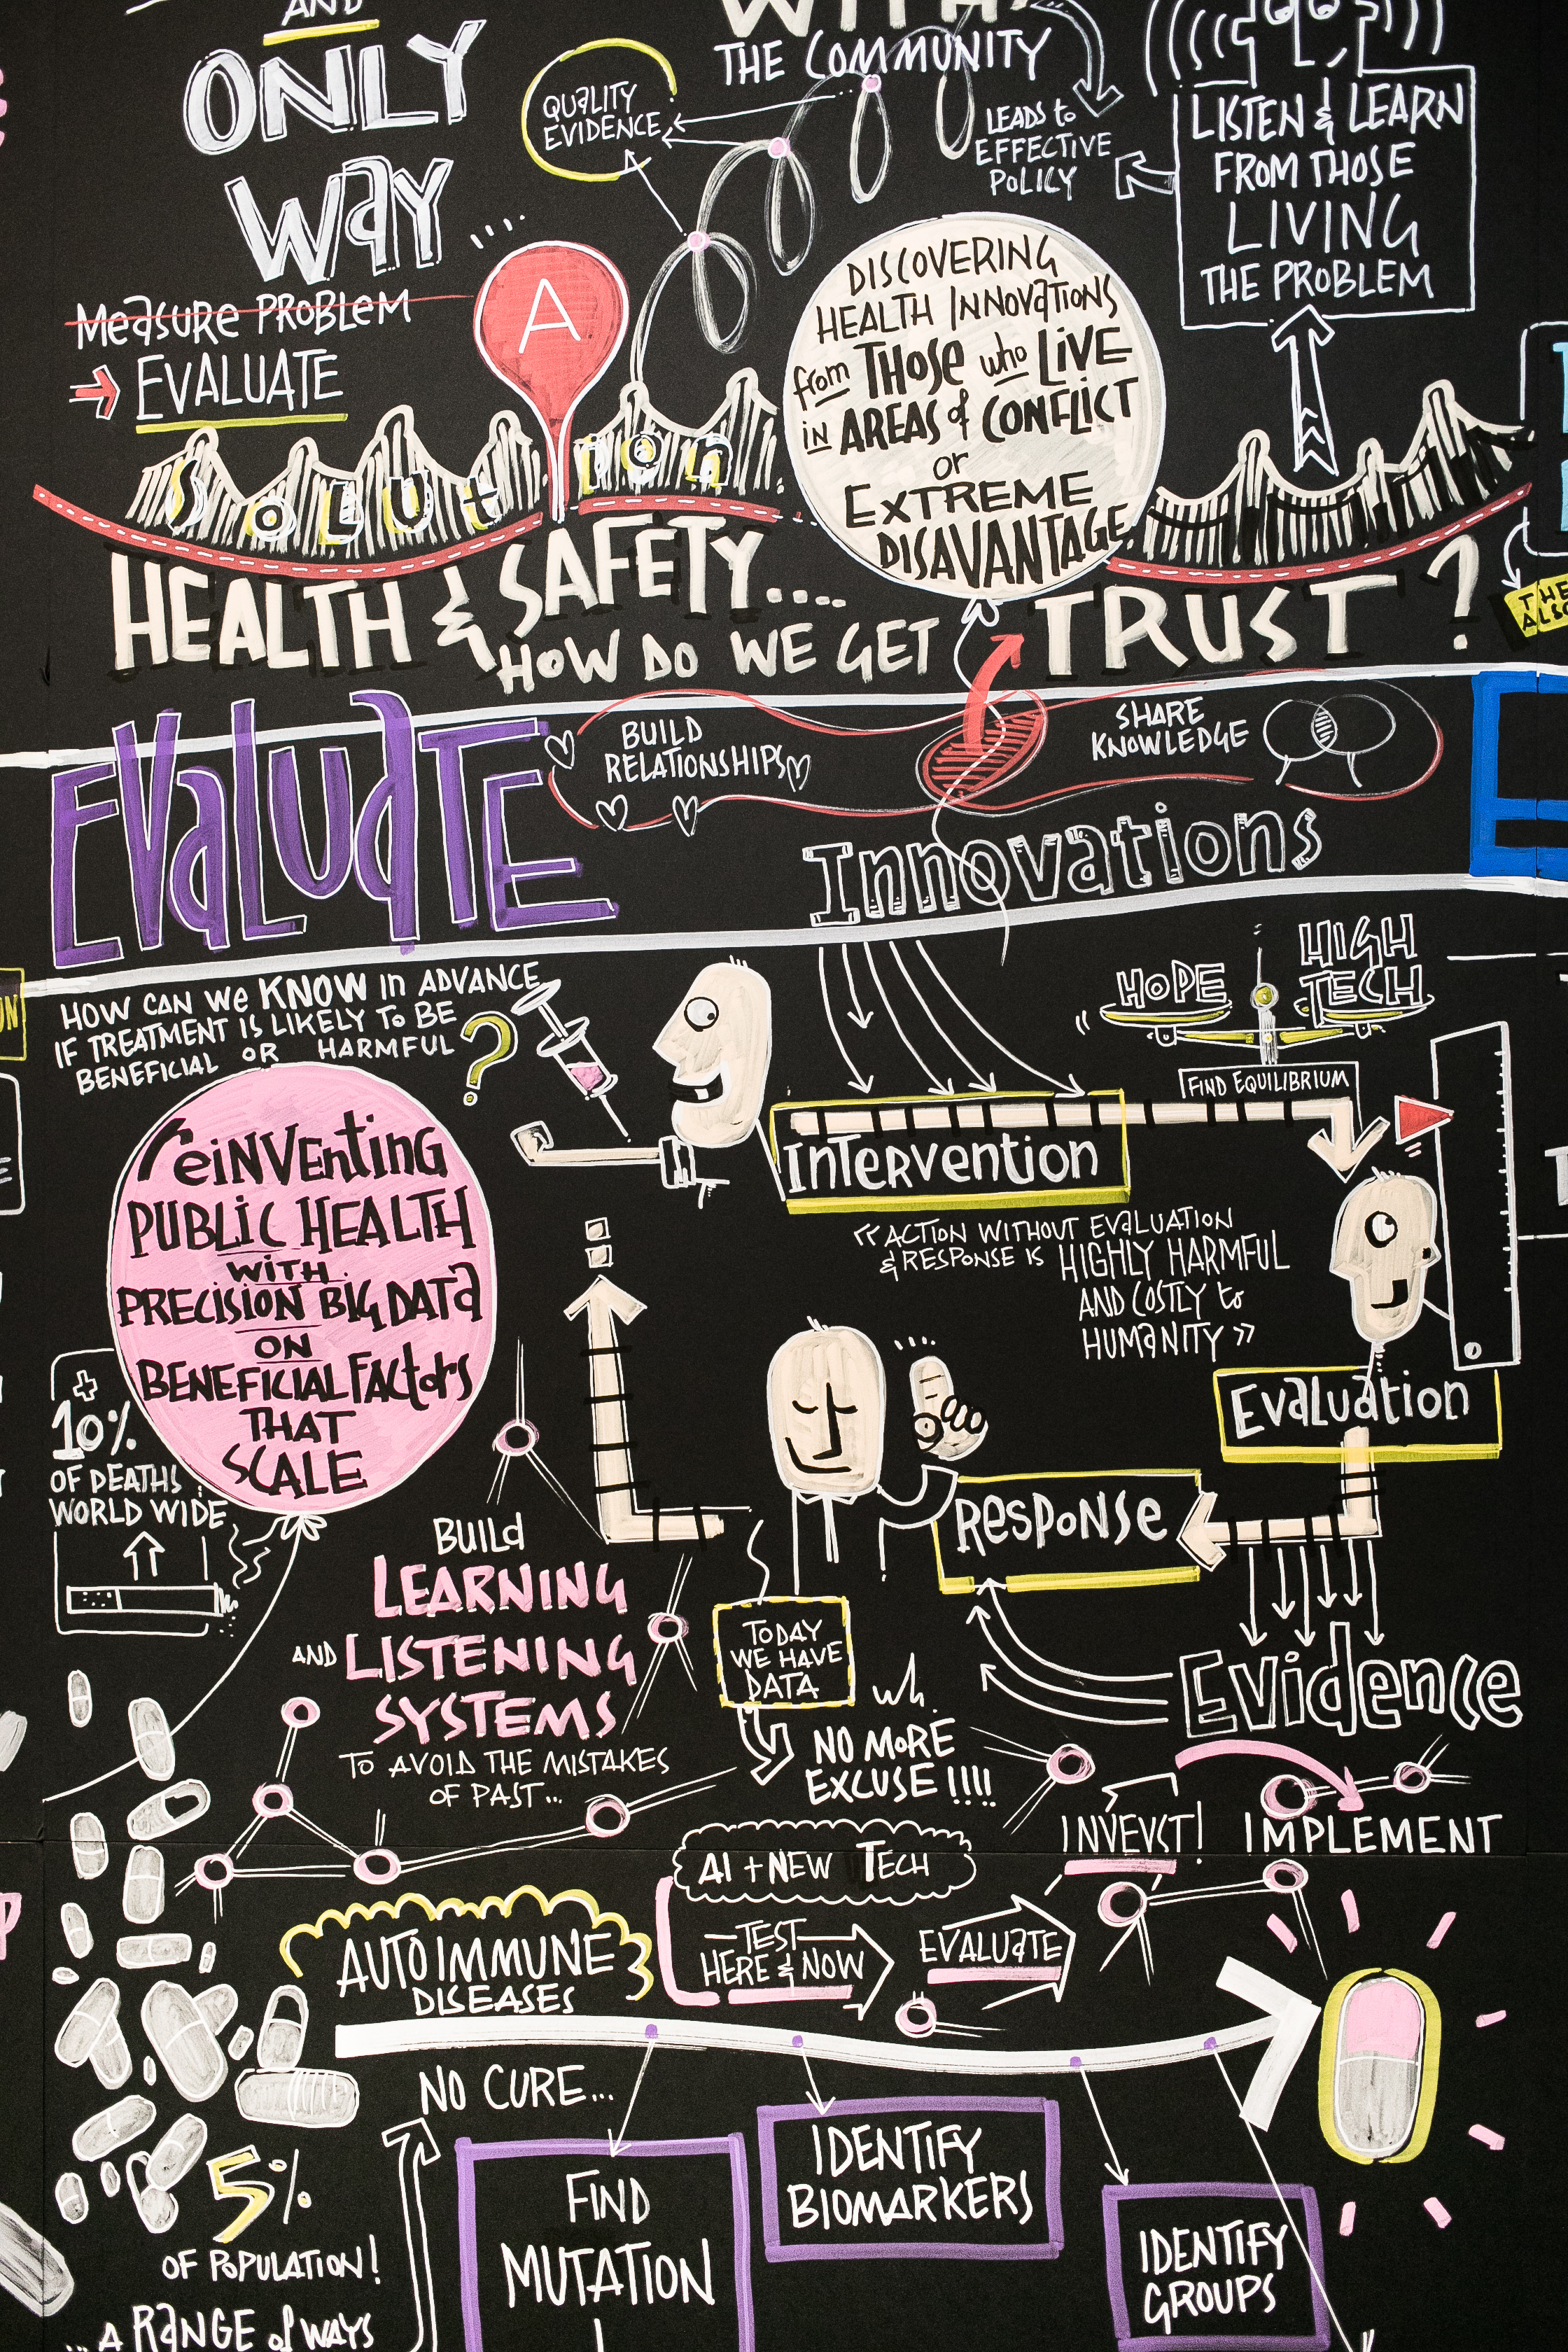 AND
ONLY
WaY
...
Measure PROBLEM
EVALUATE
WITH
THE COMMUNITY
QUALITY
EVIDENCE
LEADS to
EFFECTIVE
POLICY
LISTEN & LEARN
FROM THOSE
LIVING
THE PROBLEM
A
SOLUtion
DISCOVERING
HEALTH INNOVATIONS
from THOSE who LIVE
IN AREAS of CONFLICT
or
EXTREME
DISAVANTAGE
HEALTH & SAFETY....
HOW DO WE GET TRUST?
THE
ALSO
EVALUATE
BUILD
RELATIONSHIPS
SHARE
KNOWLEDGE
Innovations
HOW CAN WE KNOW IN ADVANCE
IF TREATMENT IS LIKELY TO BE
BENEFICIAL OR HARMFUL ?
HOPE
HIGH
TECH
FIND EQUILIBRIUM
INTERVENTION
reiNVENtiNG
PUBLIC HEALTH
WITH
PRECISION BIG DATA
ON
BENEFICIAL FACtORS
THAT
SCALE
« ACTION WITHOUT EVALUATION
& RESPONSE IS HIGHLY HARMFUL
AND COSTLY to
HUMANITY »
Evaluation
+
10%
OF DEATHS
WORLD WIDE
RESPONSE
BUILD
LEARNING
AND LISTENING
SYSTEMS
TO AVOID THE MISTAKES
OF PAST...
TODAY
WE HAVE
DATA
NO MORE
EXCUSE !!!!
Evidence
INVEVST! IMPLEMENT
AI + NEW TECH
TEST
HERE & NOW
EVALUATE
AUTOIMMUNE
DISEASES
NO CURE...
5%
OF POPULATION!
... A RANGE of WAYS
FIND
MUTATION
IDENTIFY
BIOMARKERS
IDENTIFY
GROUPS